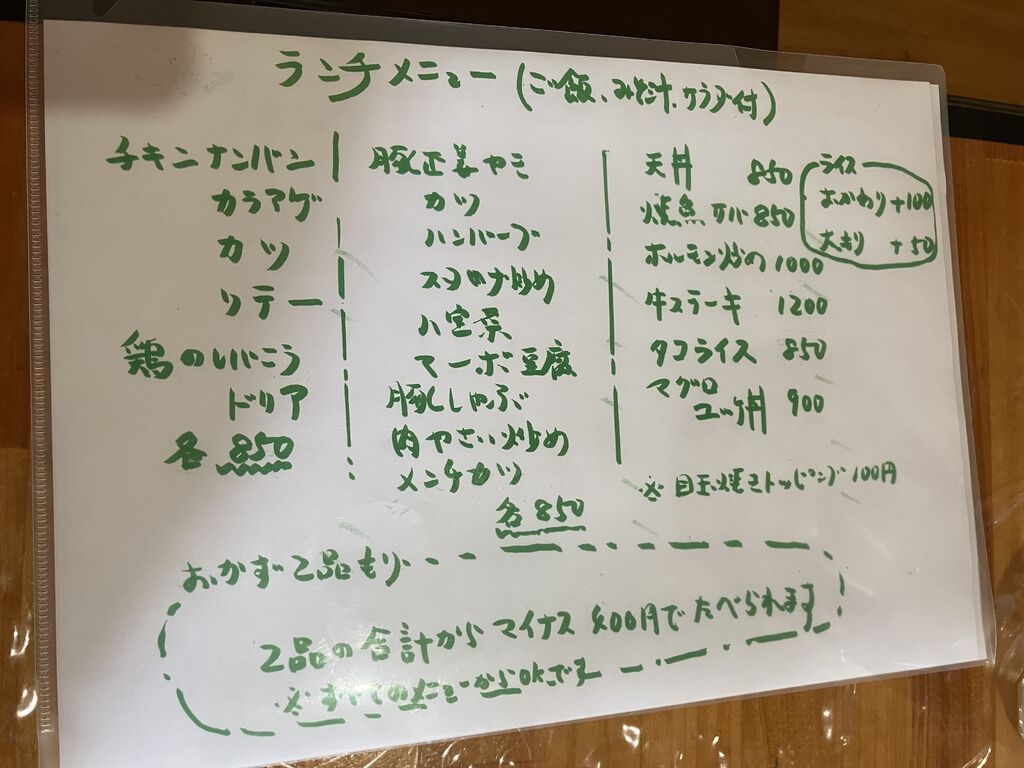 ランチメニュー (ご飯、みそ汁、サラダ付)
チキンナンバン
カラアゲ
カツ
ソテー
鶏のしぱこう
ドリア
各 850
豚正姜ヤキ
カツ
ハンバーグ
スタミナ炒め
八宝菜
マーボ豆腐
豚しゃぶ
肉やさい炒め
メンチカツ
各 850
天丼 850
焼魚 サバ 850
ホルモン炒め 1000
牛ステーキ 1200
タコライス 850
マグロ
ユッケ丼 900
ライス
おかわり +100
大モリ +50
※ 目玉焼きトッピング 100円
おかず2品もり
2品の合計からマイナス 400円でたべられます
※すべてのメニューからOKです